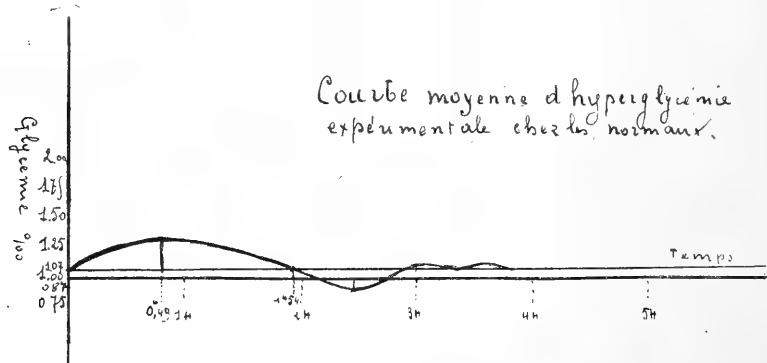 Courbe moyenne d hyperglycémie
expérimentale chez les normaux.
Glycémie %00
2.00
1.75
1.50
1.25
1.07
1.00
0.87
0.75
Temps
0,49 1H
1H54
2H
3H
4H
5H